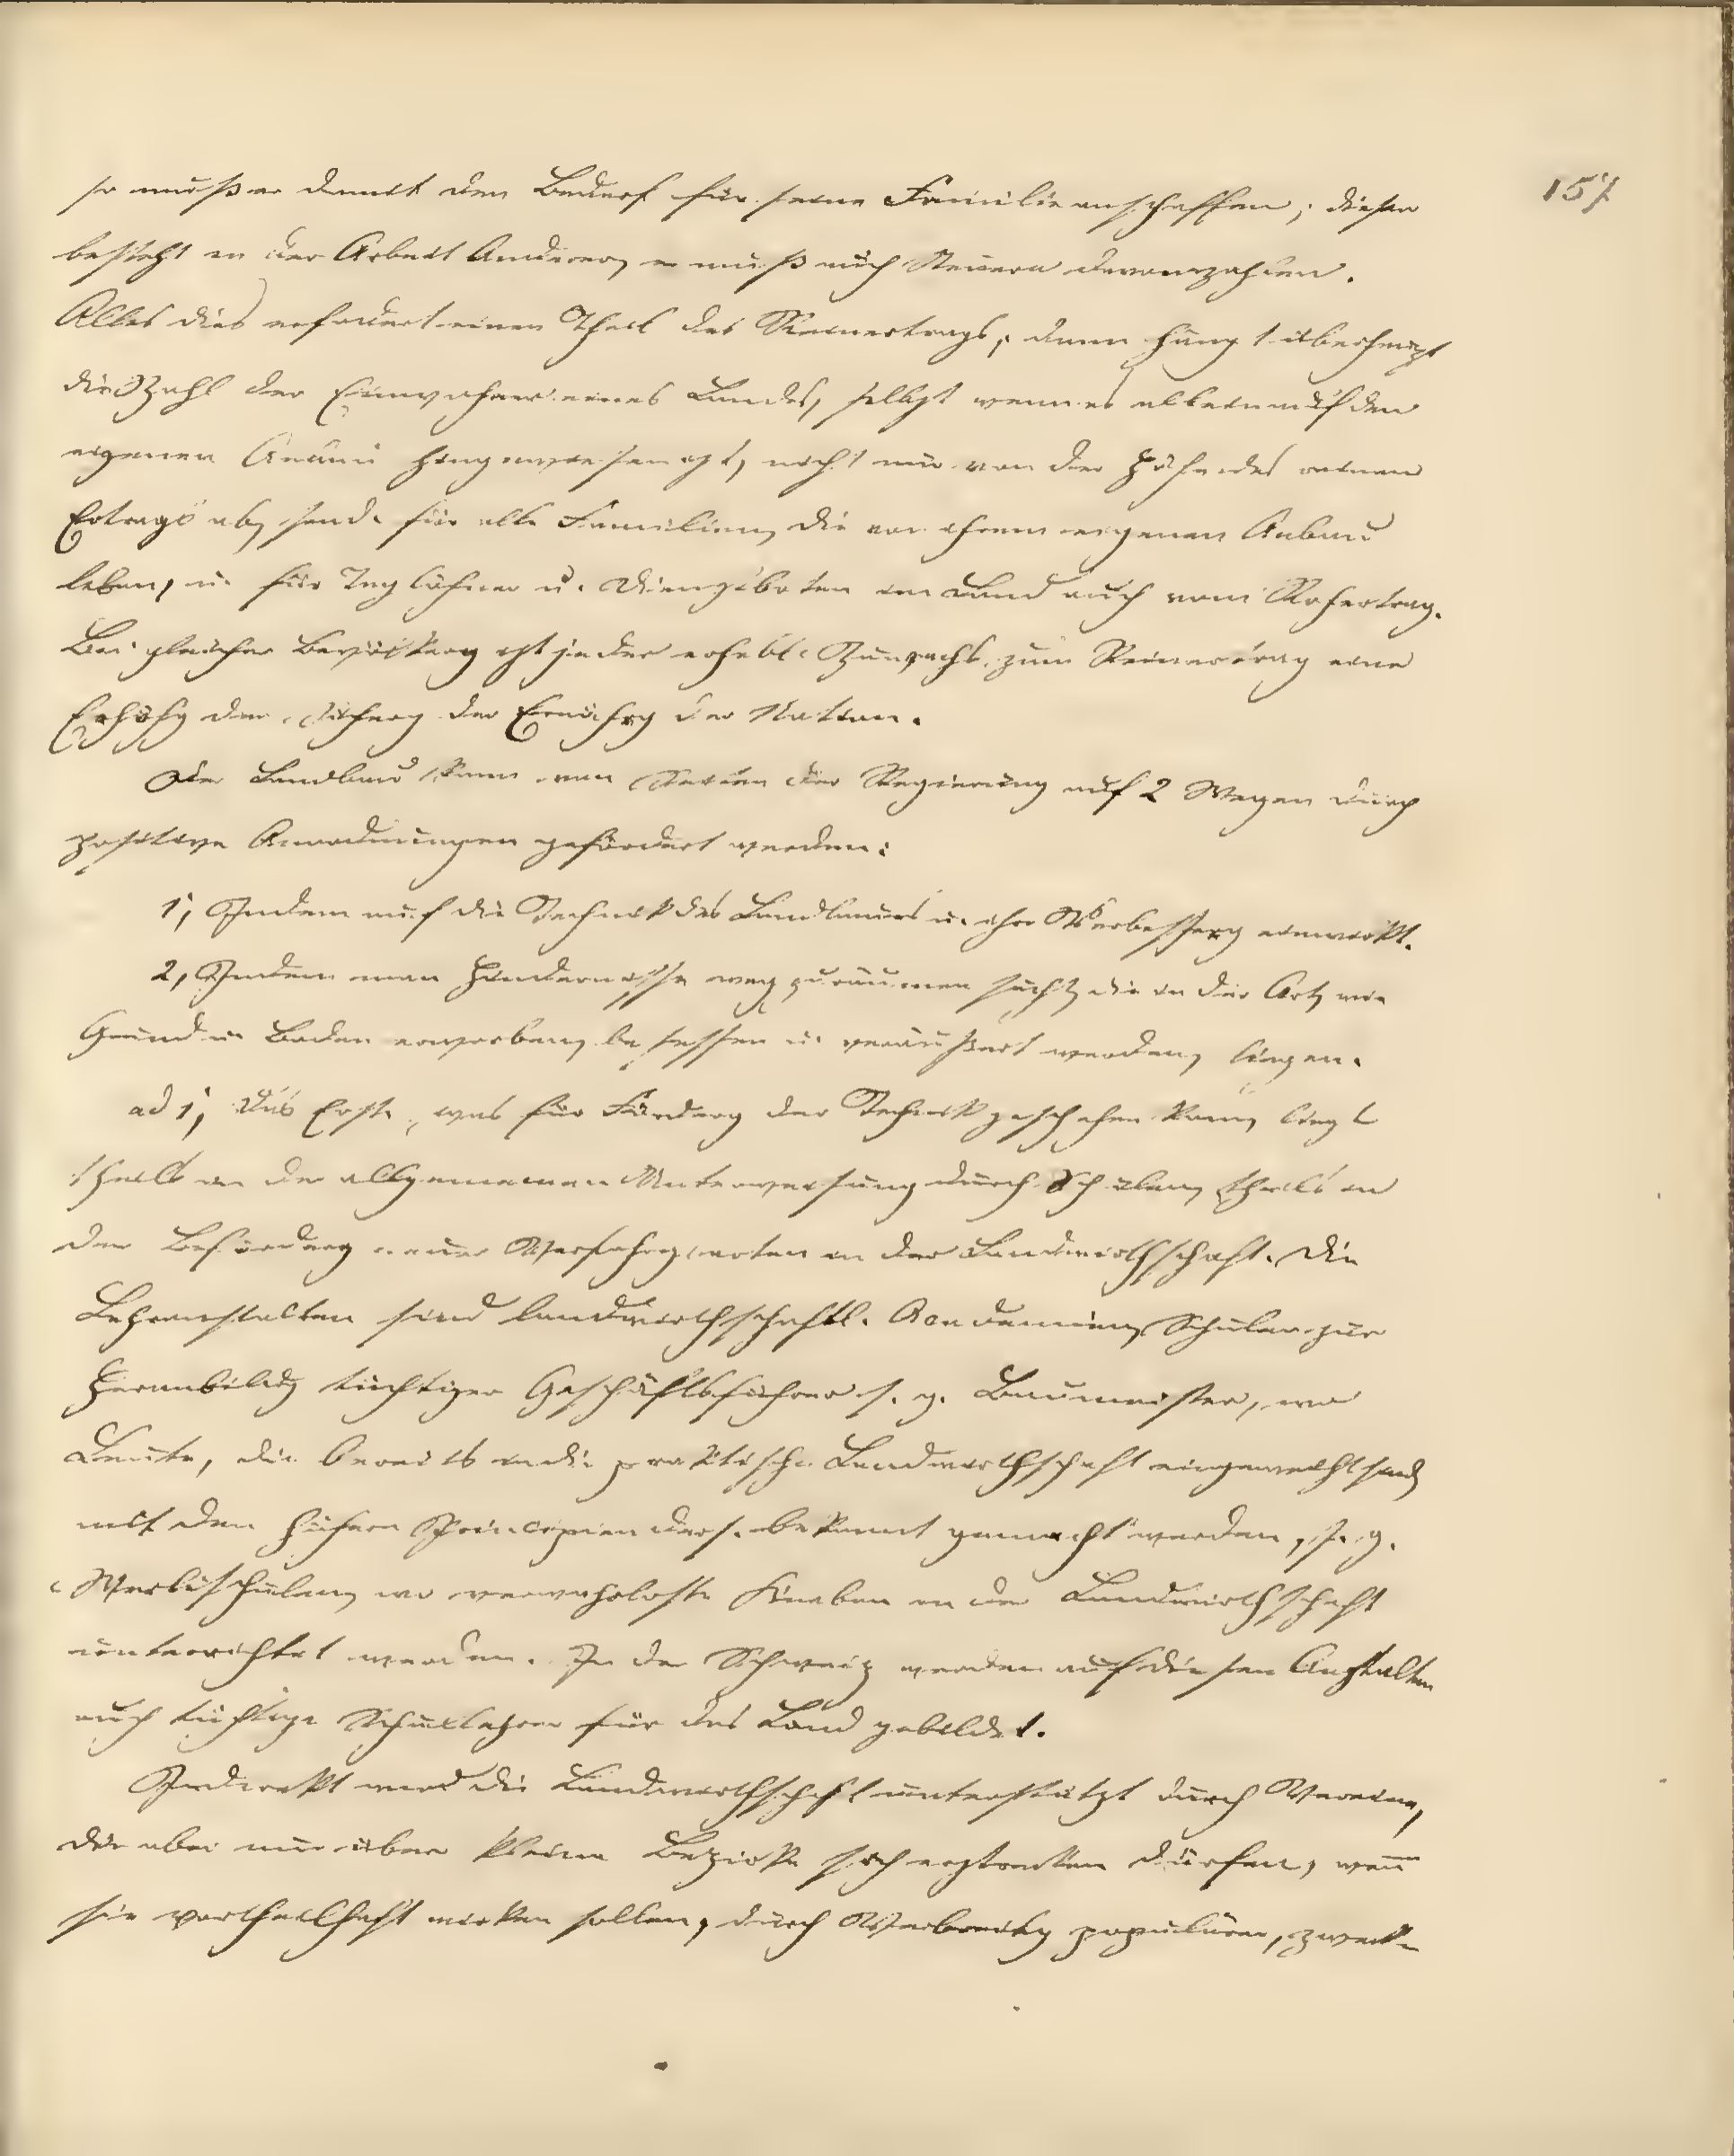 157
so muß er damit den Bedarf für seine Familie anschaffen; dieser
besteht in der Arbeit Anderer, er muß auch Steuern davon zahlen.
Alles dies erfodert einen Theil des Reinertrags, denn hängt überhaupt
die Zahl der Einwohner eines Landes, selbst wenn es allein auf den
eigenen Anbau hingewiesen ist, nicht nur von der Höhe des reinen
Ertrags ab, sond. für alle Familien, die von ihrem eigenen Anbau
leben, u. für Taglöhner u. Dienstboten im Land auch vom Rohertrag.
Bei gleicher Bevölkerg ist jeder erhebl. Zuwachs zum Reinertrag eine
Erhöhg der Sicherg der Ernährg der Nation.
Der Landbau kann von Seiten der Regierung auf 2 Wegen durch
positive Anordnungen gefördert werden:
1, Indem auf die Technik des Landbaues u. ihre Verbesserg einwirkt.
2, Indem man Hindernisse wegzuräumen sucht, die in der Art, wie
Grund u. Boden erworben, besessen u. veräußert werden, liegen.
ad 1, Das Erste, was für Förderg der Technik geschehen kann, liegt
theils in der allgemeinen Unterweisung durch Schulen, theils in
der Beförderg neuer Verfahrgsarten in der Landwirthschaft. Die
Lehranstalten sind landwirthschaftl. Academien, Schulen zur
Heranbildg tüchtiger Geschäftsführer s. g. Baumeister, wo
Leute, die bereits in die praktische Landwirthschaft eingeweiht sind,
mit den höhern Principien ders. bekannt gemacht werden, s. g.
Werlischulen, wo verwahrloste Knaben in der Landwirthschaft
unterrichtet werden. In der Schweiz werden auf diesen Anstalten
auch tüchtige Schullehrer für das Land gebildet.
Indirekt wird die Landwirthschaft unterstützt durch Vereine,
die aber nur über kleine Bezirke sich erstrecken dürfen, wenn
sie vortheilhaft wirken sollen, durch Verbreitg populärer, zweck-